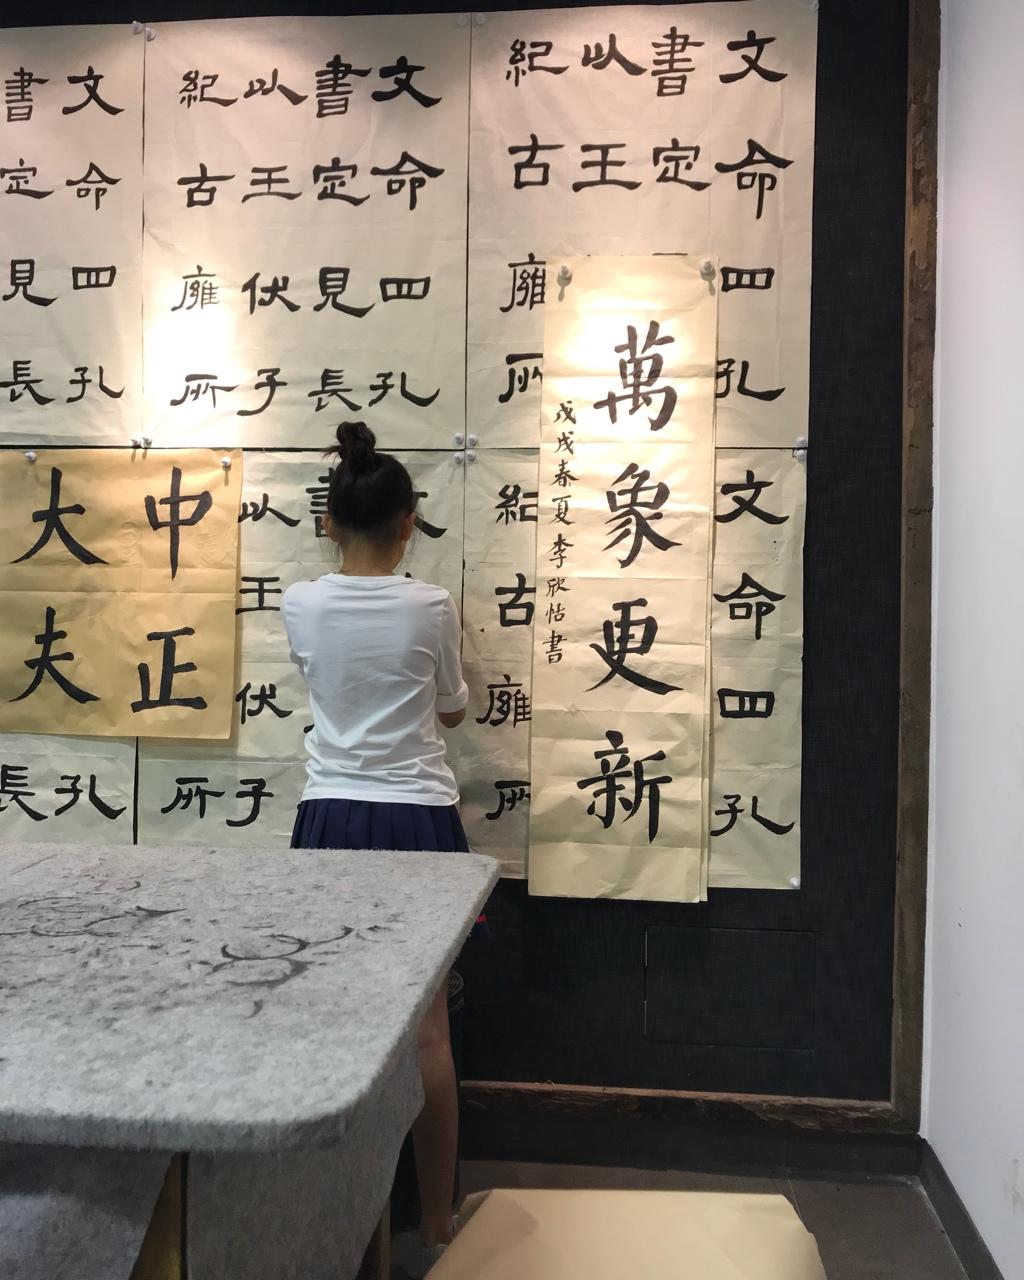 文命四孔
書定
以王
紀古廱所
文命四孔
書定見長
以王伏子
紀古廱所
文命四孔
書定見長
萬象更新
戊戌春夏李欣怡書
文命四孔
紀古廱所
以王伏子
所
中正
大夫
孔
長